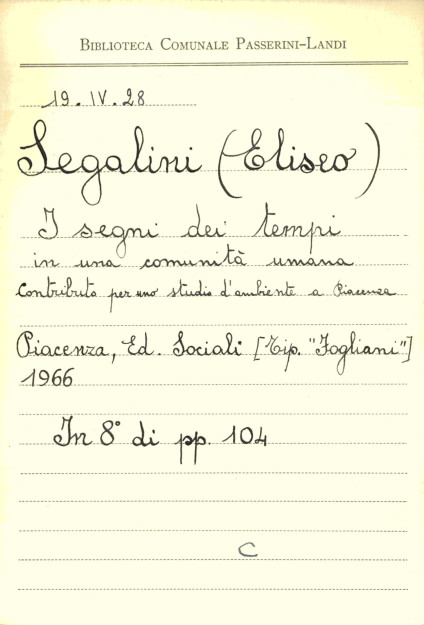 BIBLIOTECA COMUNALE PASSERINI-LANDI
19. IV. 28
Segalini (Eliseo)
I segni dei tempi
in una comunità umana
Contributo per uno studio d'ambiente a Piacenza
Piacenza, Ed. Sociali [Tip. "Fogliani"]
1966
In 8° di pp. 104
C